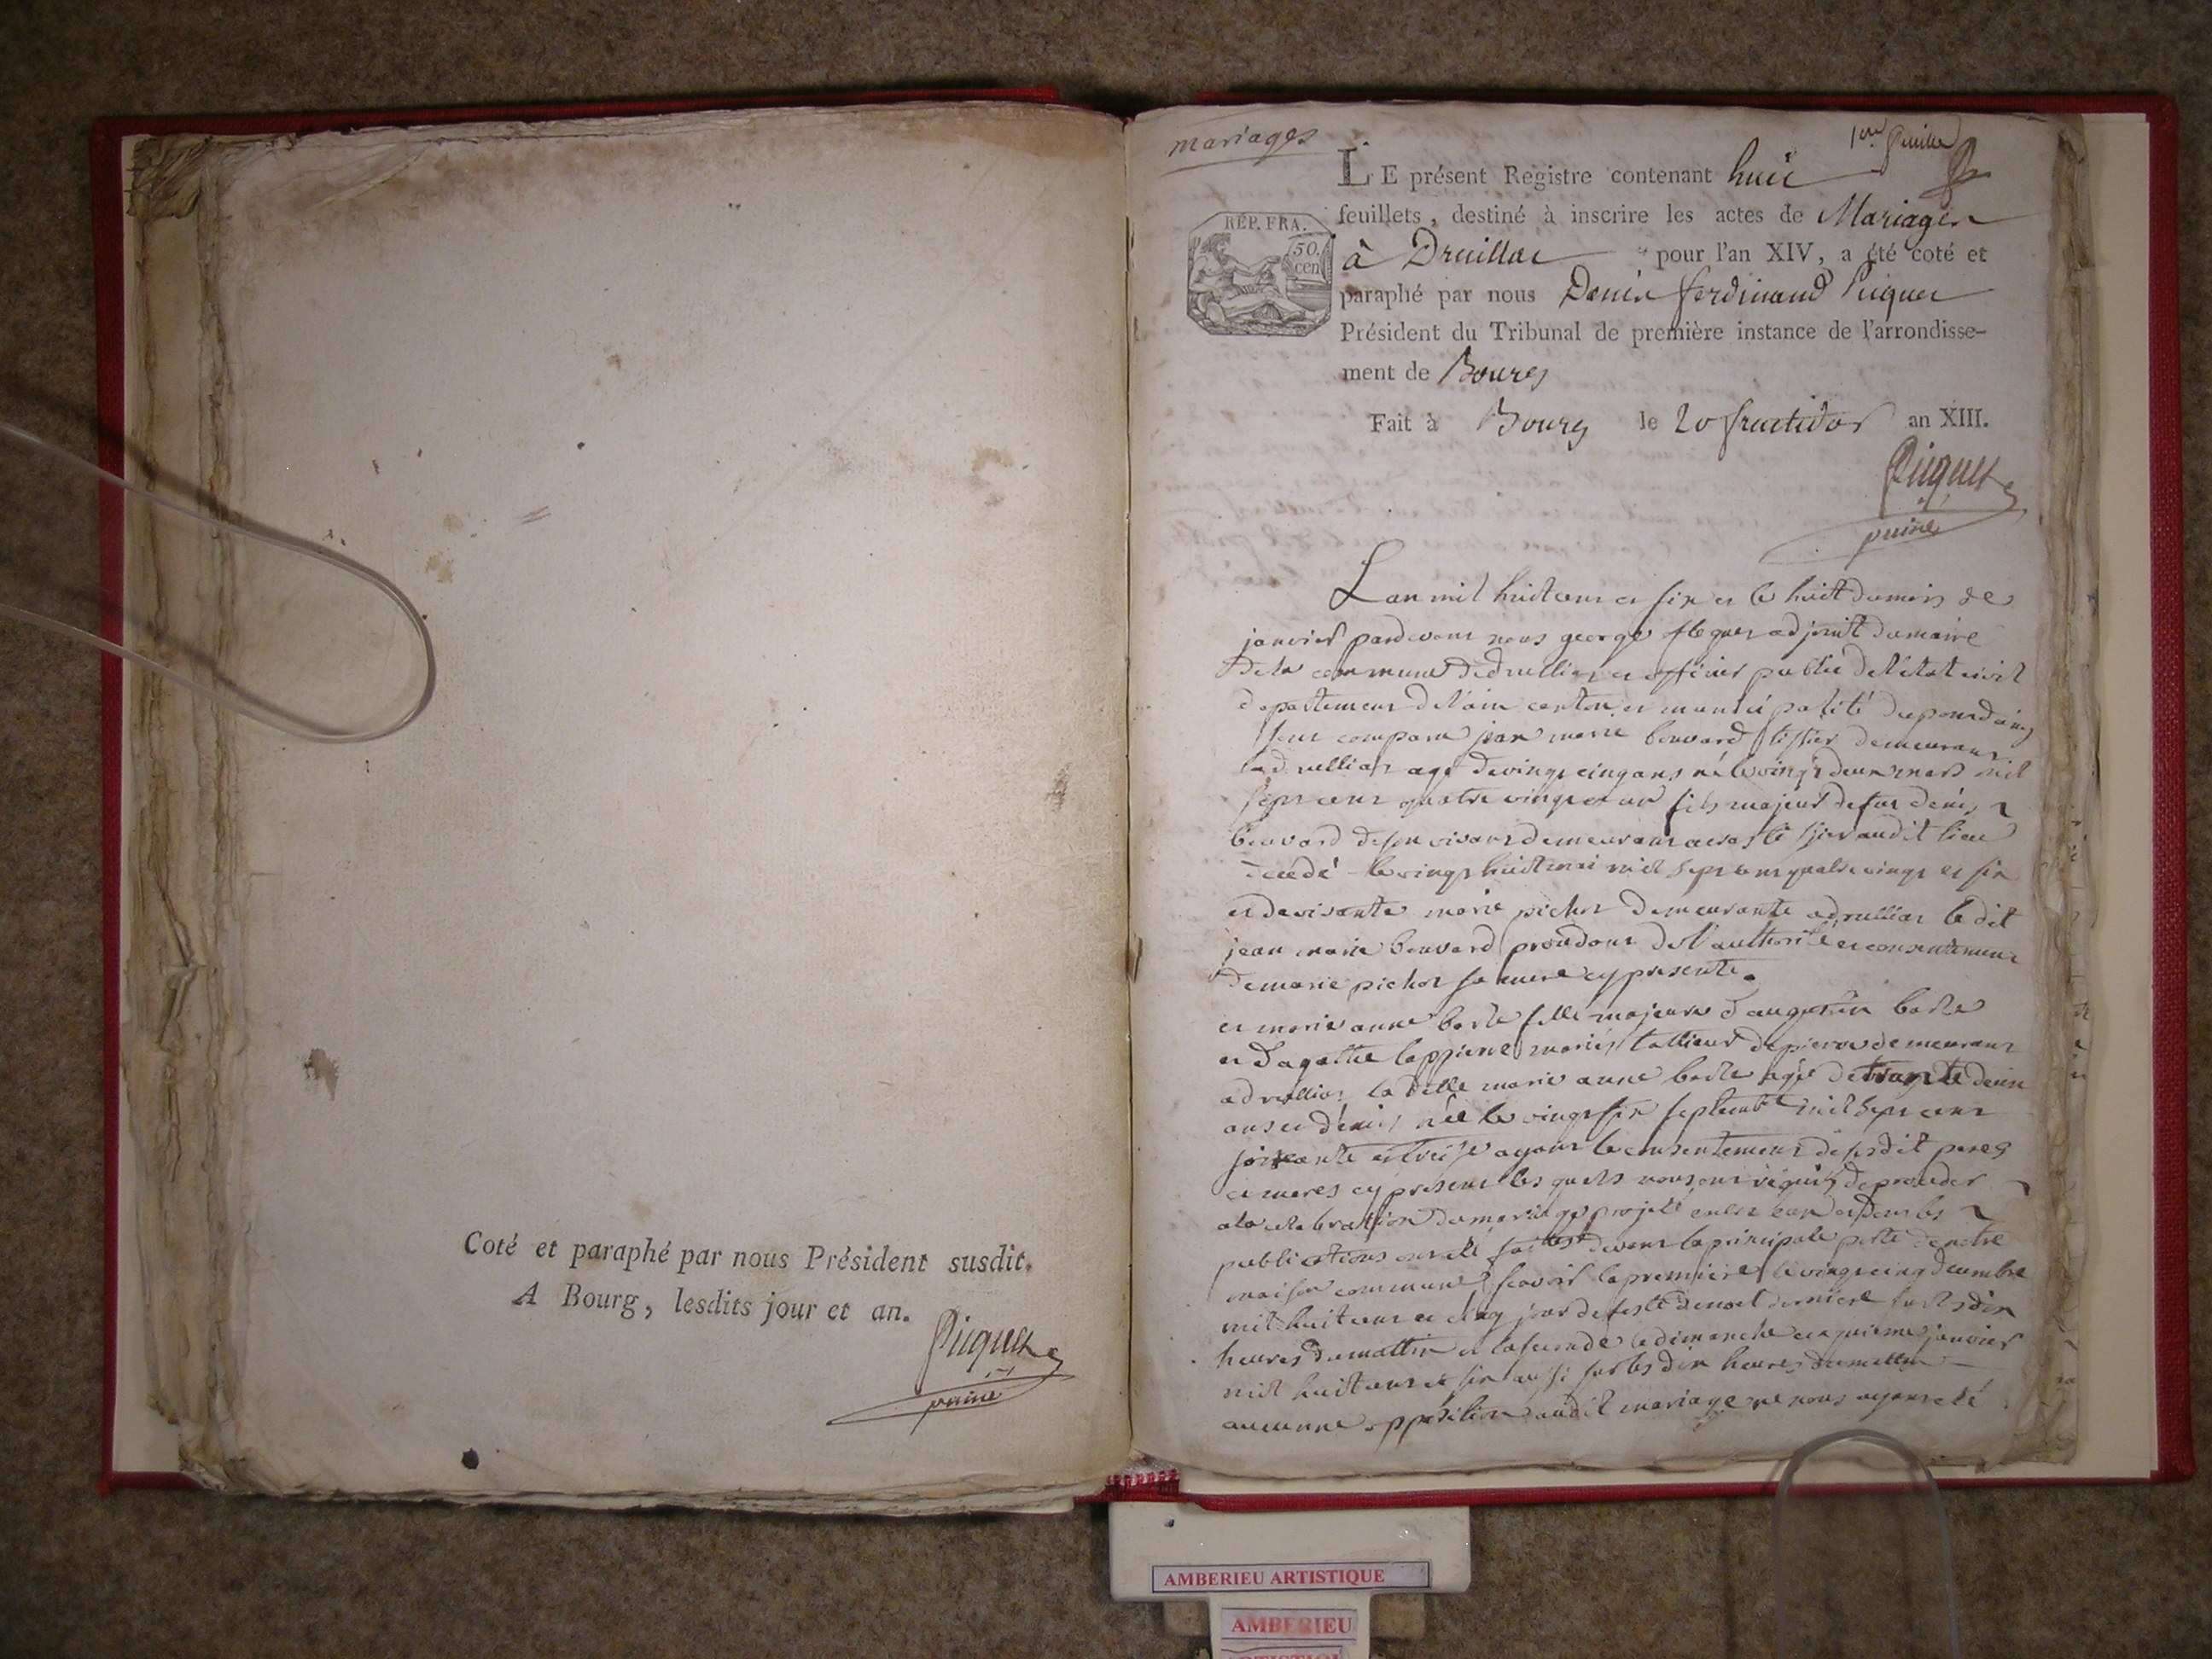 Coté et paraphé par nous Président susdit.
A Bourg, lesdits jour et an.
Picquet
puiné
mariages
1er feuillet
LE présent Registre contenant huit
feuillets, destiné à inscrire les actes de Mariages
à Druillat pour l'an XIV, a été coté et
paraphé par nous Denis ferdinand Picquet
Président du Tribunal de première instance de l'arrondisse-
ment de Bourg
Fait à Bourg le 20 fructidor an XIII.
REP. FRA.
50.
cen
Picquet
puiné
Lan mil huit cent et six et le huit du mois de
janvier pardevant nous george adjoint du maire
De la commune de druillias et officier public de l'état civil
departement de l'ain canton et municipalité du pondains
sont comparu jean marie bouvard tissier demeurant
a druillias agé de vingt cinq ans né le vingt deux mars mil
sept cent quatre vingt et un fils majeur de fut denis
bouvard de son vivant demeurant audit lieu
décédé le vingt huit mai mil sept cent quatre vingt et six
et de vivante marie pichot demeurante a druillias le dit
jean marie bouvard procedant de l'authorité et consentement
de marie pichot sa mere cy presente.
et marie anne borle fille majeure d'augustin borle
et d'agathe lappierre mariés tallieur de pierre demeurant
a druillias la ditte marie anne borle agée de trante deux
ans et demis née le vingt six septembre mil sept cent
soixante et treise ayant le consentement de ses dit peres
et meres cy present les quels nous ont réquis de proceder
a la celebration du mariage projeté entre eux et dont les
publications ont été faittes devant la principale porte de notre
maison commune scavoir la premiere le vingt cinq decembre
mil huit cent et cinq jour de feste de noel derniere sur les dix
heures du mattin et la seconde le dimanche cinquieme janvier
mil huit cent et six aussi sur les dix heures du mattin
aucunne opposition audit mariage ne nous ayant eté
AMBERIEU ARTISTIQUE
AMBERIEU
ARTISTIQUE